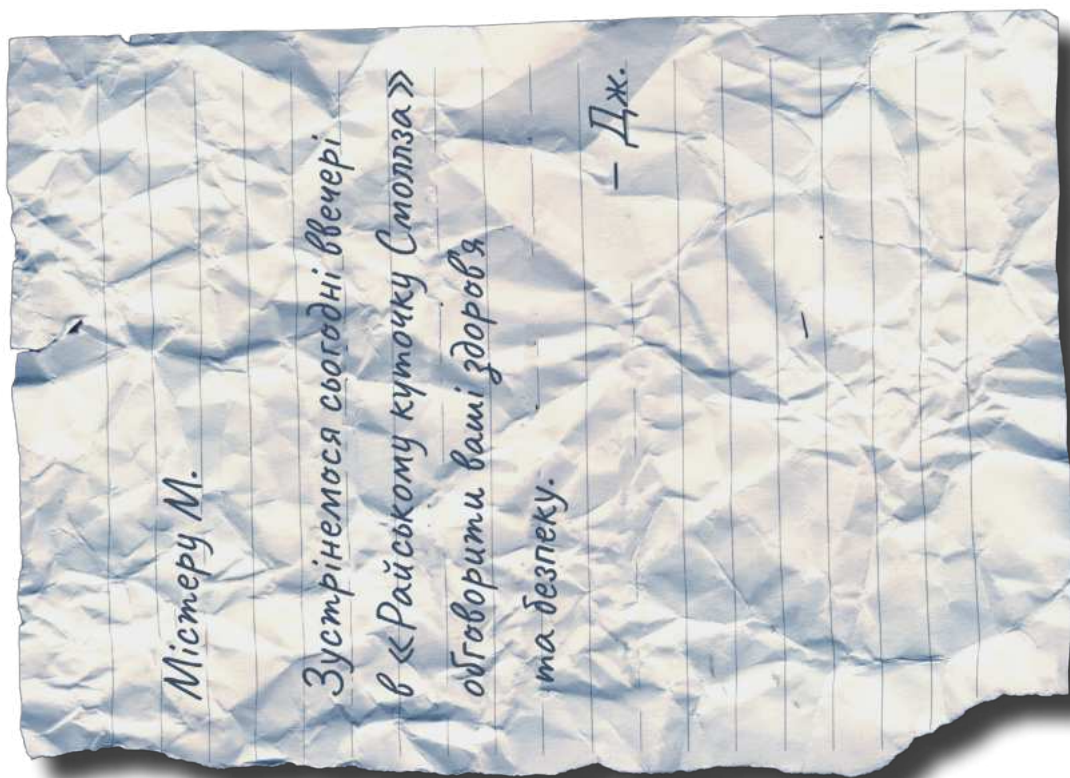 Містеру М.
Зустрінемося сьогодні ввечері
в «Райському куточку Смоллза»
обговорити ваші здоров'я
та безпеку.
– Дж.